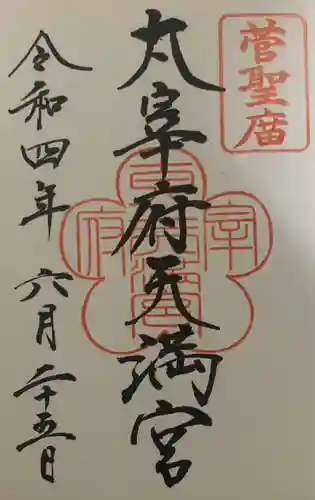 菅聖廟
太宰府天満宮
令和四年 六月二十五日